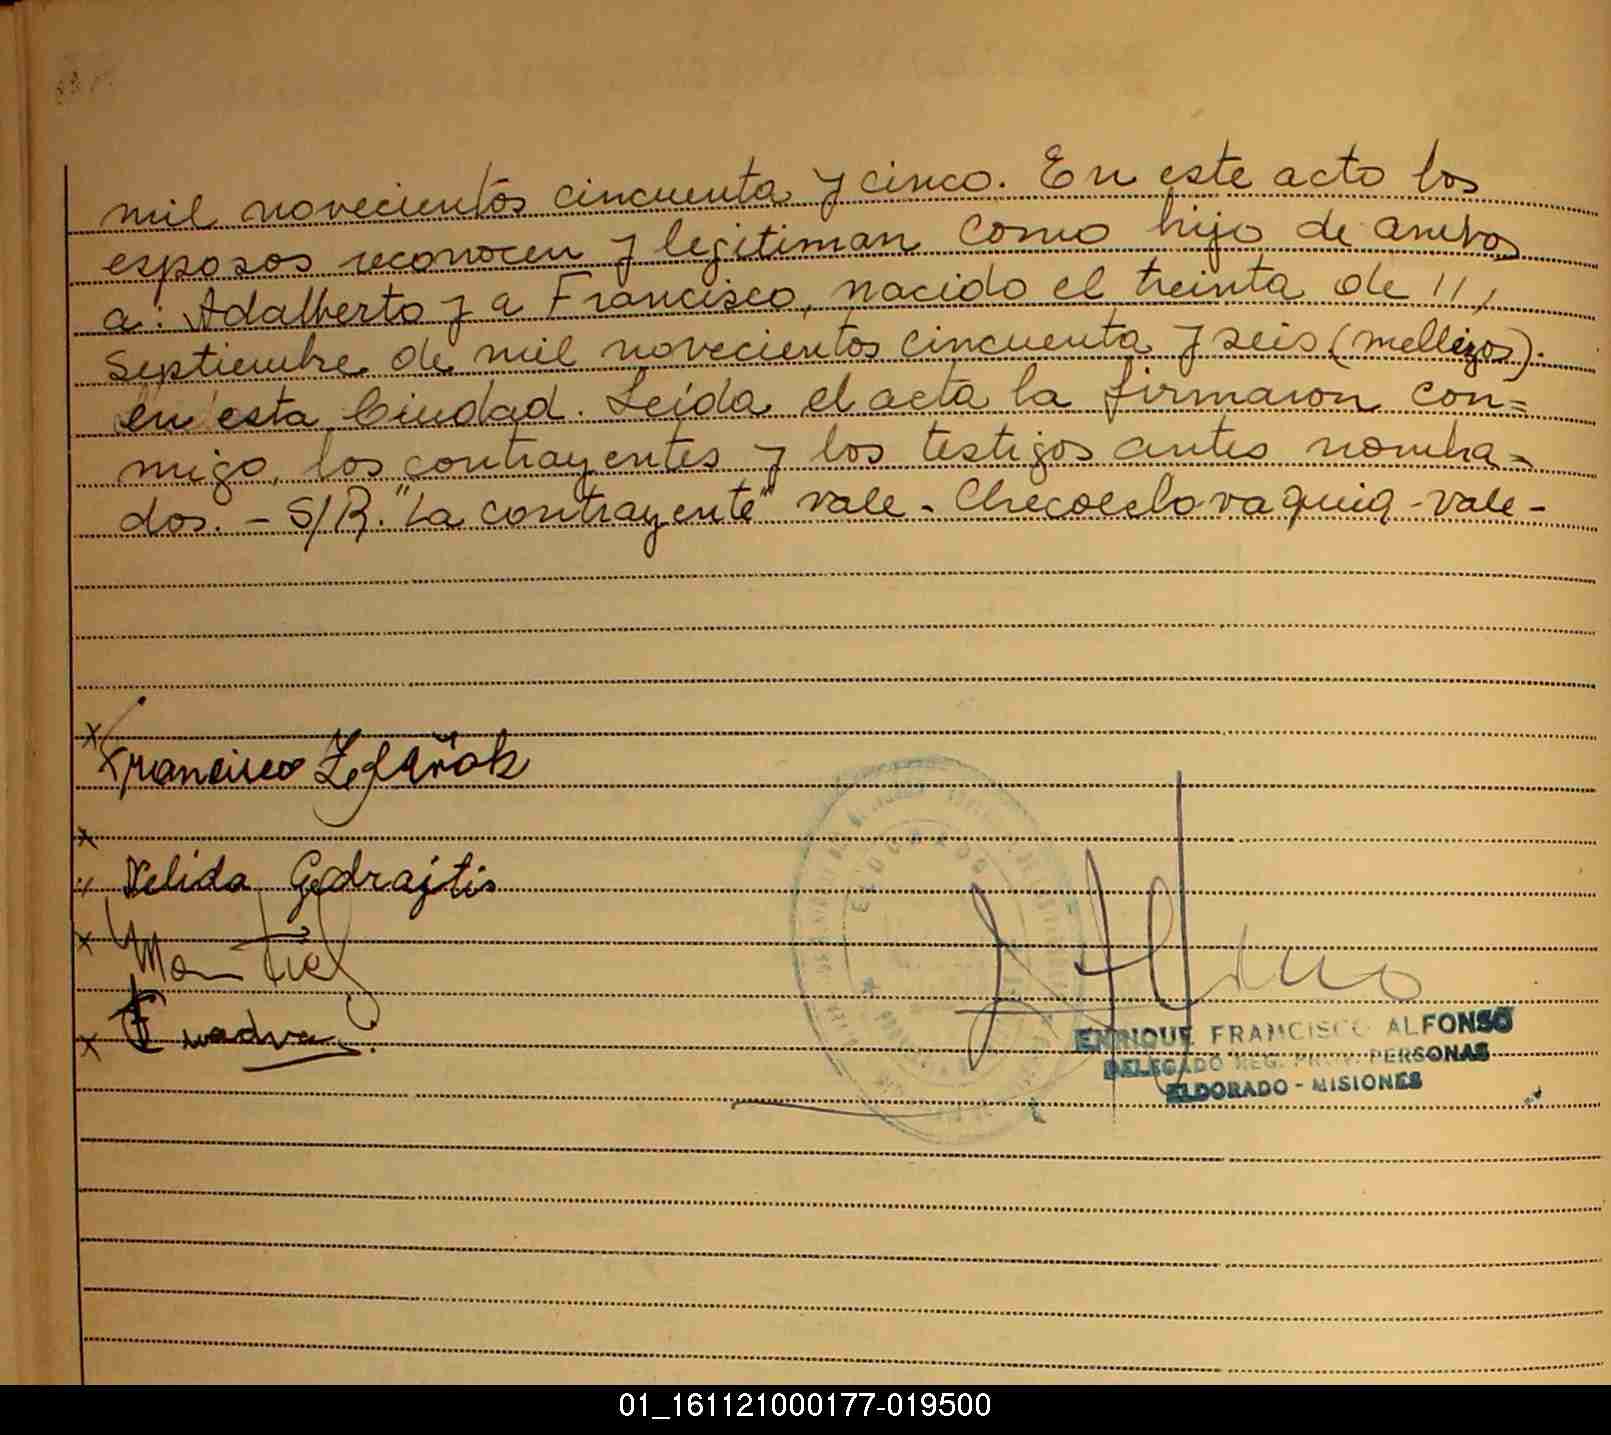 mil novecientos cincuenta y cinco. En este acto los
esposos reconocen y legitiman como hijo de ambos
a: Adalberto y a Francisco, nacido el treinta de //,
septiembre de mil novecientos cincuenta y seis (mellizos).
en esta Ciudad. Leída el acta la firmaron con=
migo, los contrayentes y los testigos antes nombra=
dos. - S/R. "La contrayente" vale - Checoeslovaquia - vale -
Francisco
Nelida Gedrajtis
Montiel
ELDORADO
ENRIQUE FRANCISCO ALFONSO
DELEGADO REG. PROV. PERSONAS
ELDORADO - MISIONES
01_161121000177-019500